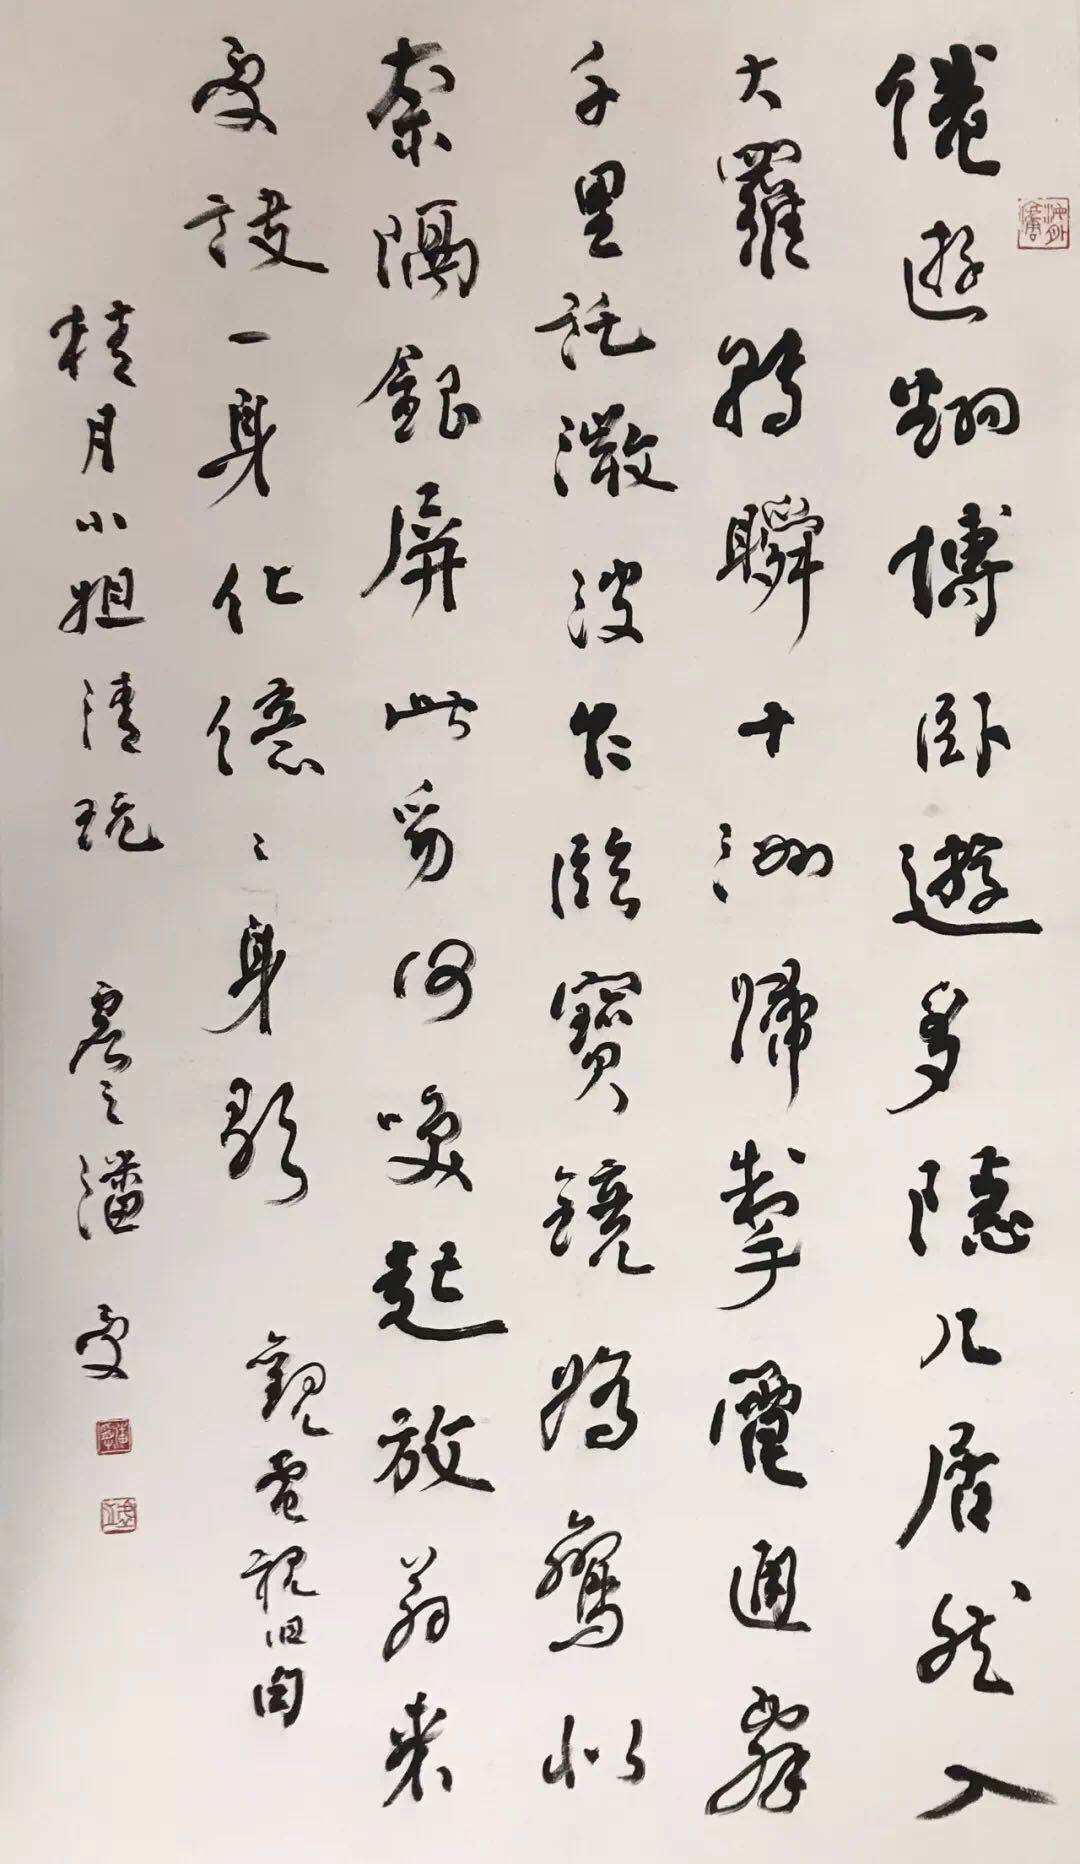 倦遊翻博卧遊多隱几居然入
大羅轉瞬十洲歸掣電通辭
千里託微波乍臨寶鏡嬌鸞似
奈隔銀屏此豸何喚起放翁來
受設一身化億〻身歌
觀電視旧句
精月小姐清玩 虛之潘受